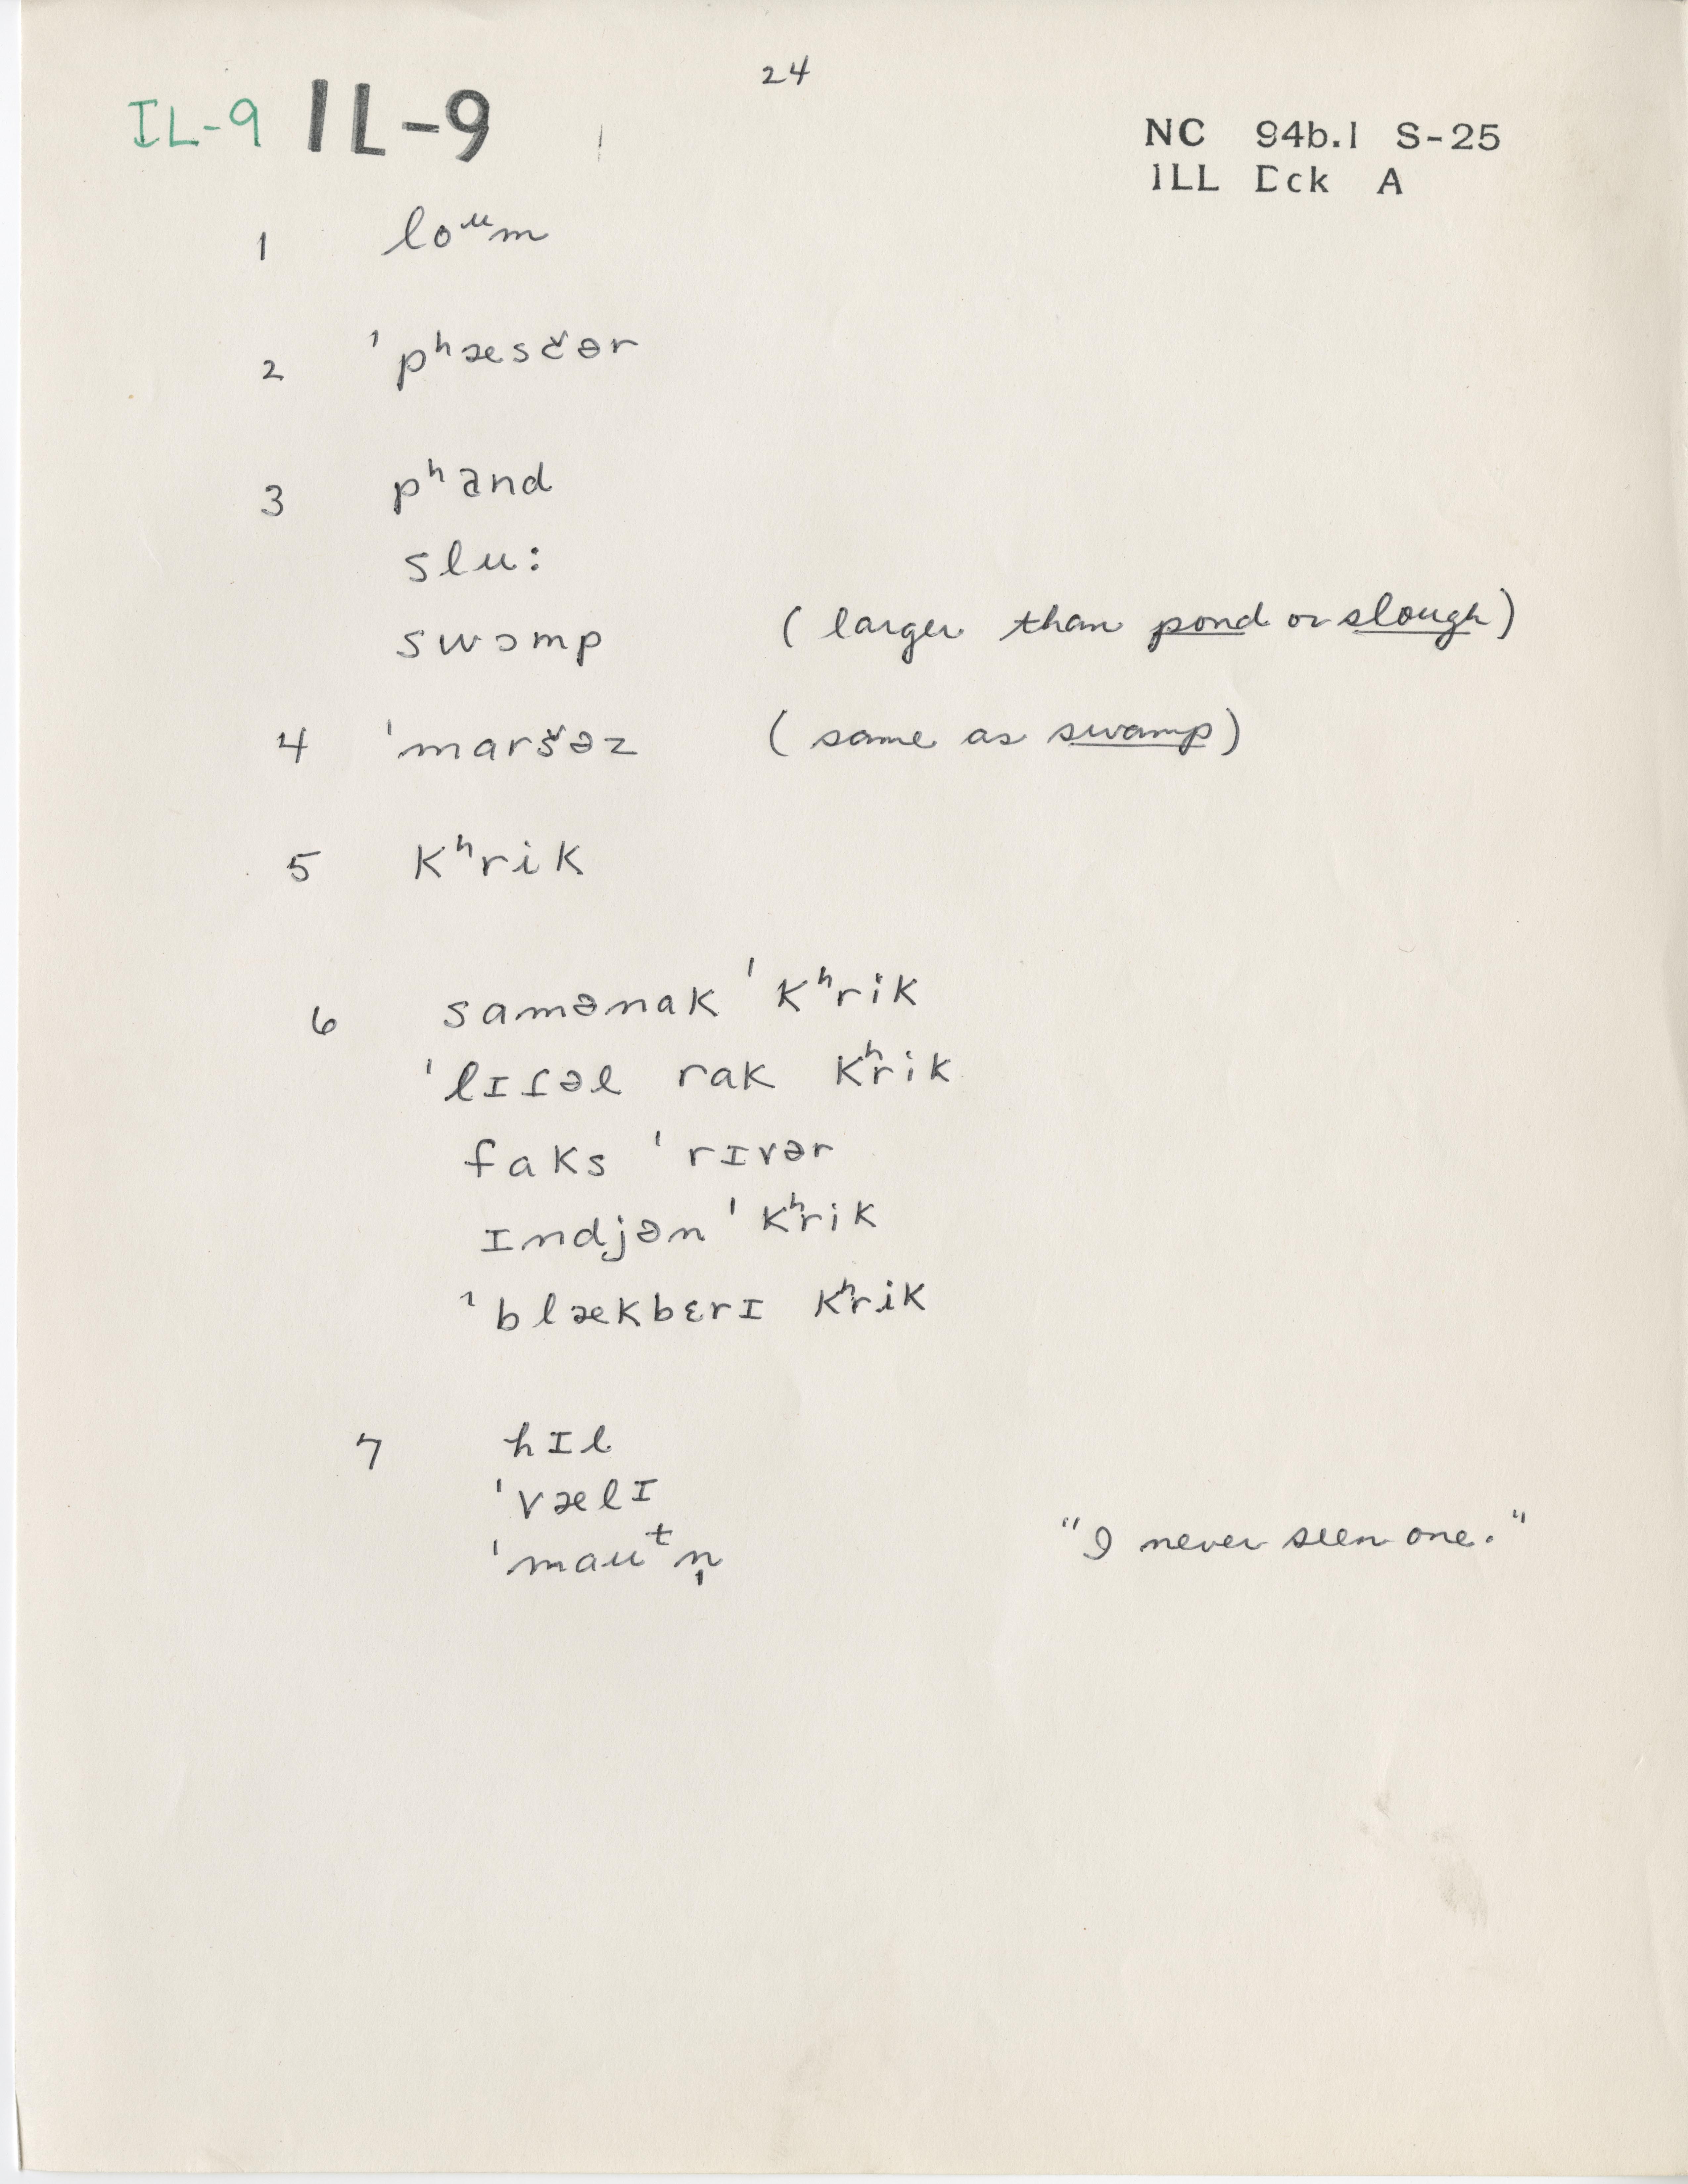 24
IL-9 IL-9
NC 94b.1 S-25
ILL Dck A
1 loᵘm
2 ˈpʰæsčər
3 pʰand
slu:
swɔmp (larger than pond or slough)
4 ˈmaršəz (same as swamp)
5 kʰrik
6 samənak ˈkʰrik
ˈlɪɾəl rak kʰrik
faks ˈrɪvər
ɪndjən ˈkʰrik
ˈblækbɛrɪ kʰrik
7 hɪl
ˈvælɪ
ˈmauᵗn̩ "I never seen one."